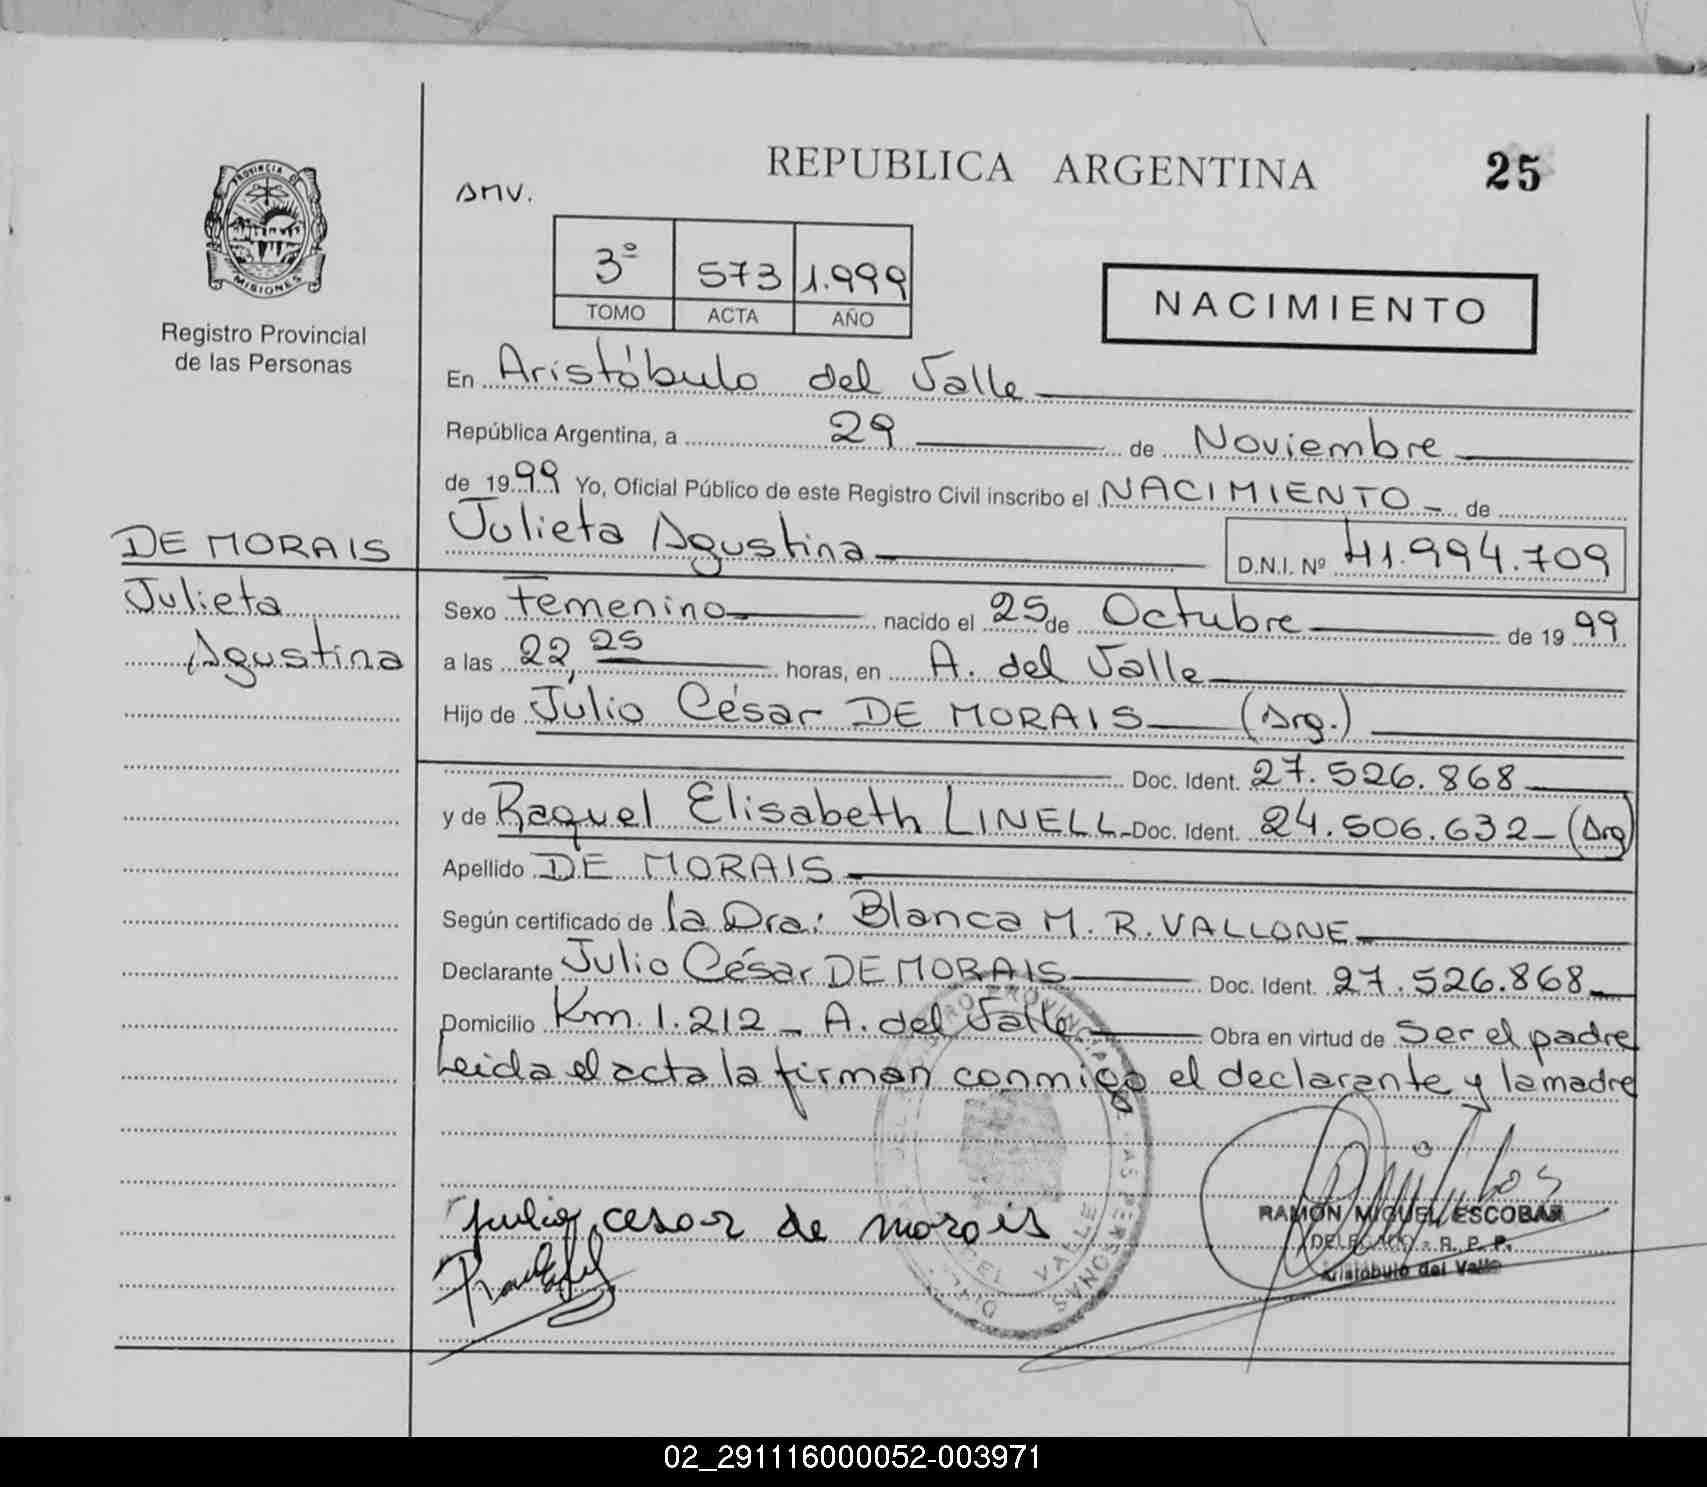 REPUBLICA ARGENTINA
25
PROVINCIA DE
MISIONES
Registro Provincial
de las Personas
3º 573 1.999
TOMO ACTA AÑO
NACIMIENTO
En Aristóbulo del Valle
República Argentina, a 29 de Noviembre
de 1999 Yo, Oficial Público de este Registro Civil inscribo el NACIMIENTO - de
DE MORAIS
Julieta
Agustina
Julieta Agustina D.N.I. Nº 41.994.709
Sexo Femenino nacido el 25 de Octubre de 1999
a las 22,25 horas, en A. del Valle
Hijo de Julio César DE MORAIS (Arg.)
Doc. Ident. 27.526.868
y de Raquel Elisabeth LINELL Doc. Ident. 24.506.632 - (Arg)
Apellido DE MORAIS
Según certificado de la Dra: Blanca M. R. VALLONE
Declarante Julio César DE MORAIS Doc. Ident. 27.526.868
Domicilio Km. 1.212 - A. del Valle Obra en virtud de Ser el padre
Leida el acta la firman conmigo el declarante y la madre
Julio cesar de morais
RAMÓN MIGUEL ESCOBAR
DELEGADO - R. P. P.
Aristóbulo del Valle
02_291116000052-003971